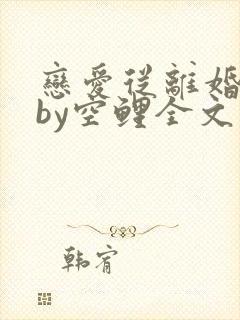 戀愛從離婚
by空鯉全文
韩宥